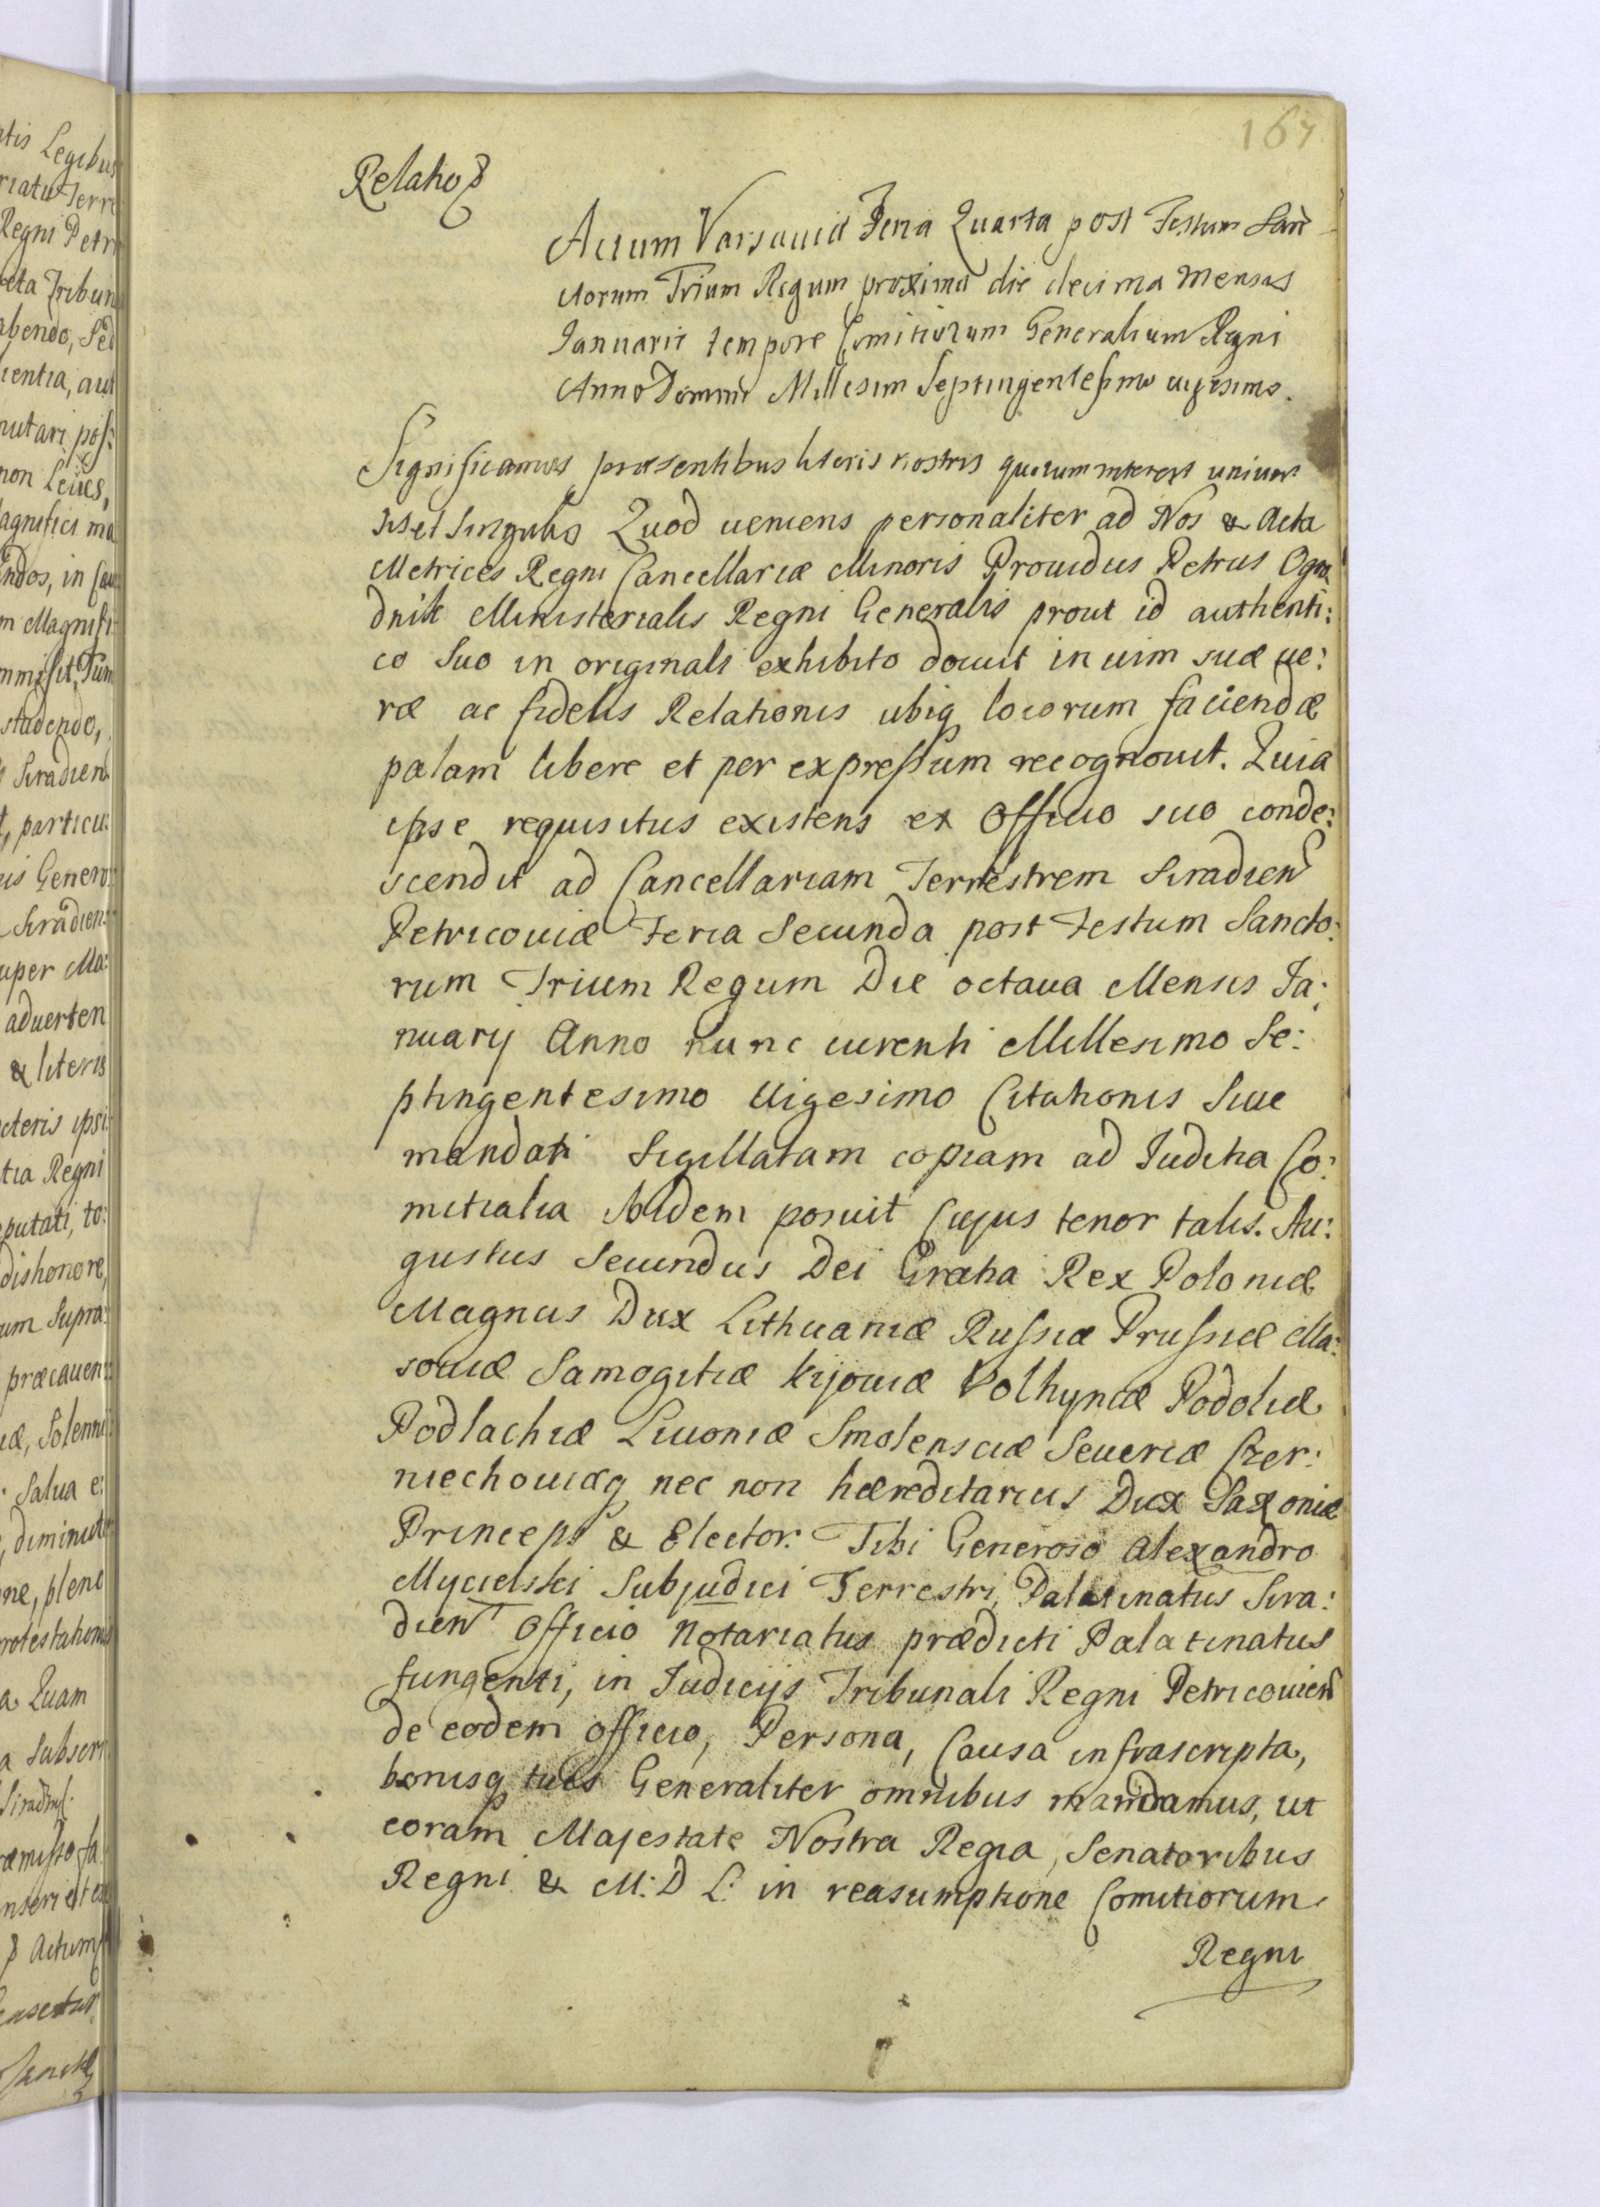 167
Relatio
Actum Varsaviæ Feria Quarta post Festum San
ctorum Trium Regum proxima die decima Mensis
Januarii tempore Comitiorum Generalium Regni
Anno Domini Millesim Septingentesimo uigesimo.
Significamus præsentibus literis nostris quorum interest univer
sis et singulis Quod ueniens personaliter ad Nos & Acta
Metrices Regni Cancellariæ Minoris Prouidus Petrus Ogro
dnik Ministerialis Regni Generalis prout id authenti:
co suo in originali exhibito docuit in uim suæ ue:
ræ ac fidelis Relationis ubiq locorum faciendæ
palam libere et per expressum recognouit. Quia
ipse requisitus existens ex Officio suo conde:
scendit ad Cancellariam Terrestrem Siradien
Petricouiæ Feria Secunda post Festum Sancto:
rum Trium Regum Die octaua Mensis Ja:
nuarij Anno nunc currenti Millesimo Se:
ptingentesimo Uigesimo Citationis Siue
mandati Sigillatam copiam ad Judicia Co:
mitialia Ibidem posuit Cujus tenor talis. Au:
gustus Secundus Dei Gratia Rex Poloniæ
Magnus Dux Lithuaniæ Russiæ Prussiæ Ma:
souiæ Samogitiæ Kijouiæ Volhyniæ Podoliæ
Podlachiæ Liuoniæ Smolensciæ Seueriæ Czer:
niechouiæq nec non hæreditarius Dux Saxoniæ
Princeps & Elector. Tibi Generoso Alexandro
Mycielski Subjudici Terrestri Palatinatus Sira:
dien Officio Notariatus prædicti Palatinatus
fungenti, in Judicijs Tribunali Regni Petricouien
de eodem officio, Persona, Causa infrascripta,
bonisq tuis Generaliter omnibus mandamus, ut
coram Majestate Nostra Regia, Senatoribus
Regni & M: D L: in reasumptione Comitiorum
Regni